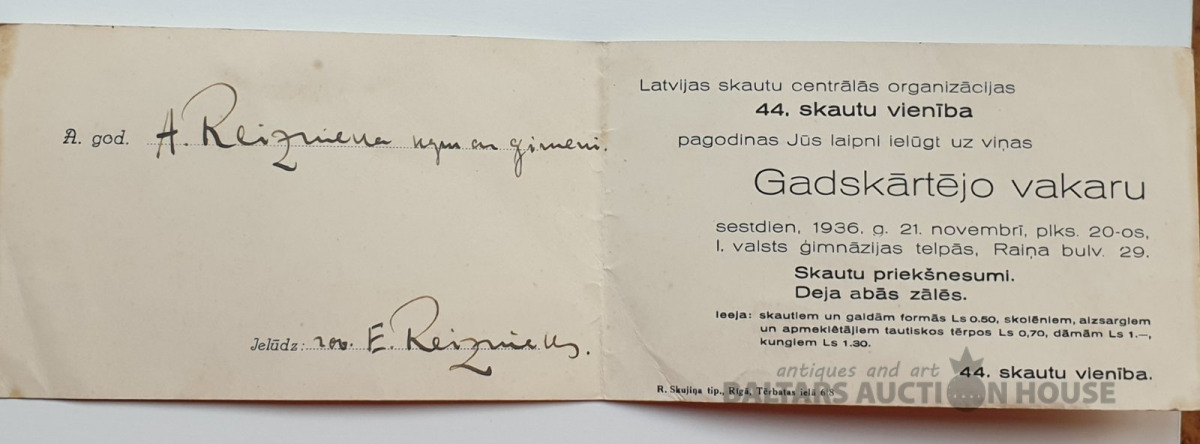 A. god. A. Reiznieka kgm ar ģimeni.
Ielūdz: rov. E. Reiznieks.
Latvijas skautu centrālās organizācijas
44. skautu vienība
pagodinas Jūs laipni ielūgt uz viņas
Gadskārtējo vakaru
sestdien, 1936. g. 21. novembrī, plks. 20-os,
I. valsts ģimnāzijas telpās, Raiņa bulv. 29.
Skautu priekšnesumi.
Deja abās zālēs.
Ieeja: skautiem un gaidām formās Ls 0.50, skolēniem, aizsargiem
un apmeklētājiem tautiskos tērpos Ls 0,70, dāmām Ls 1.—,
kungiem Ls 1.30.
44. skautu vienība.
R. Skujiņa tip., Rīgā, Tērbatas ielā 6/8
antiques and art
BALTARS AUCTION HOUSE